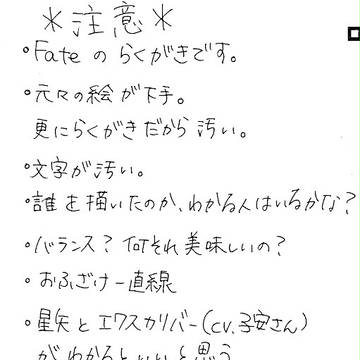 ＊注意＊
・Fateのらくがきです。
・元々の絵が下手。
更にらくがきだから汚い。
・文字が汚い。
・誰を描いたのか、わかる人はいるかな？
・バランス？何それ美味しいの？
・おふざけ一直線
・星矢とエクスカリバー(cv.子安さん)
がわかるといいと思う